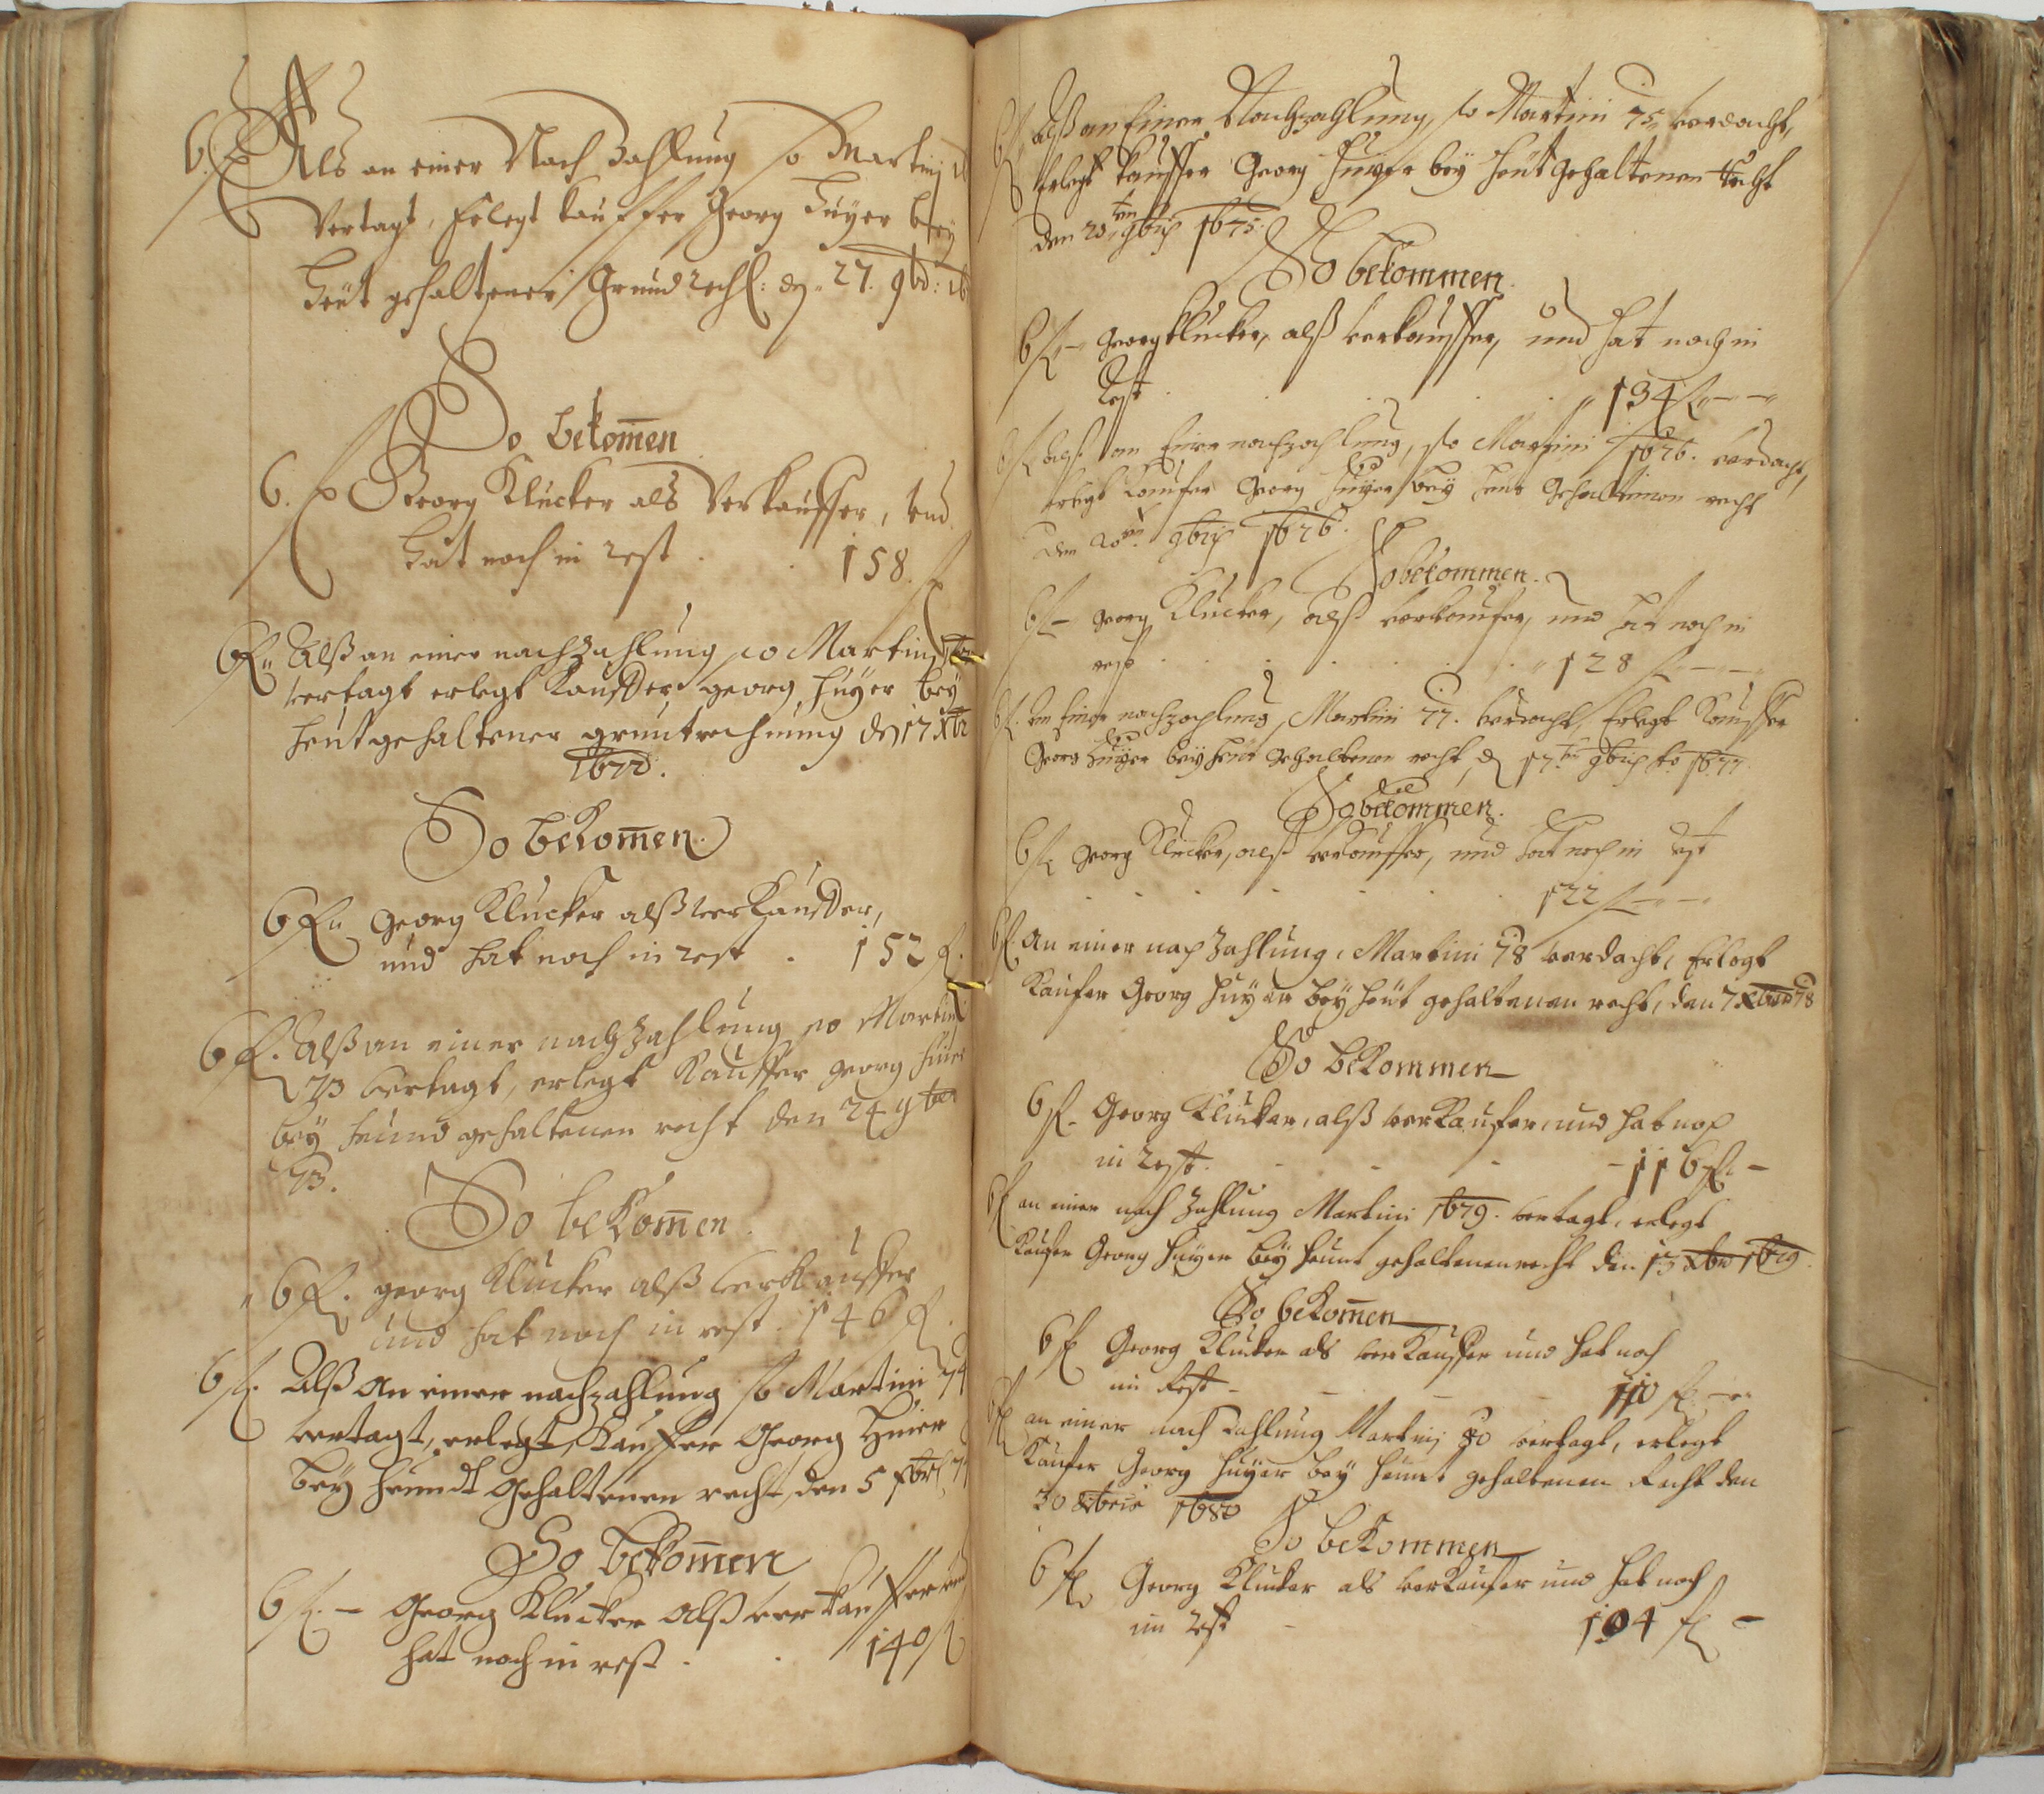 6. fl Als an einer Nach Zahlung so Martinj
Vertagt, Erlegt kauffer Georg Huyer bey
Heut gehaltener Grundrech: den 27. 9br:
So bekom̄en
6. fl Georg Klucker als Verkauffer, vnd
hat noch in rest . . 158. fl
6 fl Alß an einer nachZahlung so Martinj
vertagt erlegt Kauffer georg huyer bey
heut gehaltener gruntrechnung den 17 Xbr
1672.
So bekom̄en.
6 fl georg Klucker alß verkauffer,
und hat noch in rest . 152 fl.
6 fl. Alß an einer nachZahlung so Martini
73 vertagt, erlegt Kauffer georg huier
bey heund gehaltenen recht den 24 9br
73.
So bekom̄en
6 fl. georg Klucker alß verkauffer
und hat noch in rest. 146 fl.
6 fl. Alß an einer nachzahlung so Martini 74
vertagt, erlegt, Kauffer Georg Huier
bey heundt gehaltenen recht, den 5 Xbr
So bekom̄en
6 fl. – georg Klucker alß verkauffer und
hat noch in rest . . 140 fl
6 fl alß an Einer Nachzahlung, so Martini 75 verdacht,
erlegt kauffer Georg huyer bey heut gehaltenen recht
den 20ten 9bris 1675.
So bekommen.
6 fl – georg klucker, alß verkauffer, und hat noch in
Rest . . . 134 fl – –
6 fl alß an Einer nachzahlung, so Martini 1676. verdacht,
erlegt Kaufer Georg huyer bey heut gehaltenen recht
den 20ten 9bris 1676.
So bekommen.
6 fl – georg Klucker, alß verkaufer, und hat noch in
rest . . . . . . 128 fl – –
6 fl. an Einer nachzahlung, Martini 77. verdacht, Erlegt Kauffer
Georg huyer bey heut gehaltenen recht, d 17ten 9bris 1677
So bekommen.
6 fl georg Klucker, alß verkauffer, und hat noch in rest
. . . . . . 122 fl – –
6 fl. an einer nach Zahlung, Martini 78 verdacht, Erlegt
Kaufer Georg huyer bey heut gehaltenen recht, den 7 Xbris 78
So bekommen
6 fl. Georg Klucker, alß verkaufer, und hat noch
in rest. – – – – 116 fl. –
6 fl an einer nach Zahlung Martini 1679. vertagt, erlegt
Kaufer Georg huyer bey heunt gehaltenen recht den 13 Xbr 1679.
So bekom̄en
6 fl Georg Klucker als verkauffer und hat noch
im Rest – – – – 110 fl –
6 fl an einer nach Zahlung Martinj 80 vertagt, erlegt
Kaufer Georg huyer bey heunt gehaltenen Recht den
30 1680
So bekommen
6 fl Georg Klucker als verkaufer und hat noch
im rest – 104 fl –